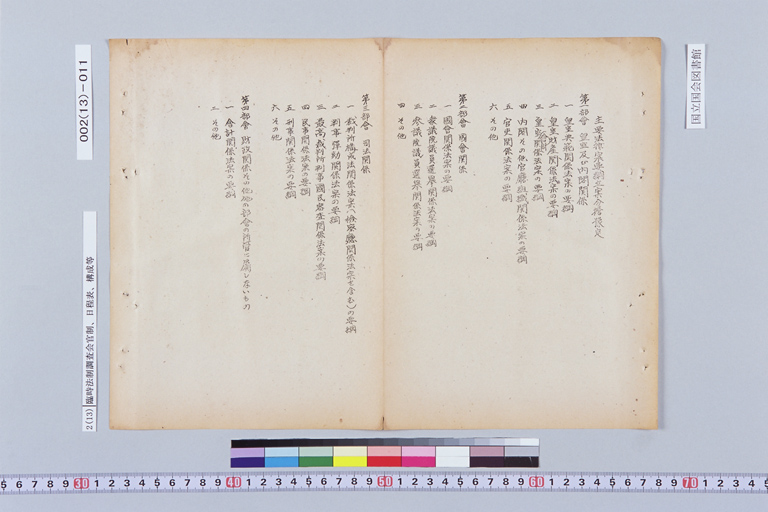 主要法律案要綱立案分擔豫定
第一部會 皇室及び内閣関係
一 皇室典範関係法案の要綱
二 皇室財産関係法案の要綱
三 皇室関係法案の要綱
四 内閣その他官廳組織関係法案の要綱
五 官吏関係法案の要綱
六 その他
第二部會 國會関係
一 國會関係法案の要綱
二 衆議院議員選挙関係法案の要綱
三 参議院議員選挙関係法案の要綱
四 その他
第三部會 司法関係
一 裁判所構成法関係法案(檢察廳関係法案を含む)の要綱
二 判事彈劾関係法案の要綱
三 最高裁判所判事國民審査関係法案の要綱
四 民事関係法案の要綱
五 刑事関係法案の要綱
六 その他
第四部會 財政関係その他他の部會の所管に属しないもの
一 会計関係法案の要綱
二 その他
国立国会図書館
002(13)-011
2(13) 臨時法制調査会官制、日程表、構成等
5 6 7 8 9 30 1 2 3 4 5 6 7 8 9 40 1 2 3 4 5 6 7 8 9 50 1 2 3 4 5 6 7 8 9 60 1 2 3 4 5 6 7 8 9 70 1 2 3 4